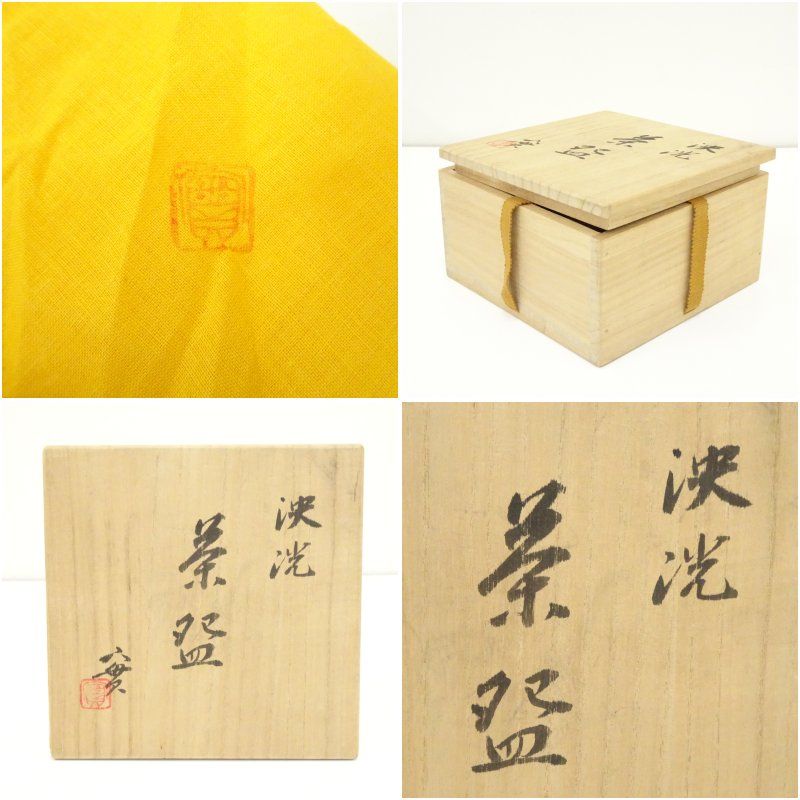 泱洸
茶盌
實
泱洸
茶盌
實
泱洸
茶盌